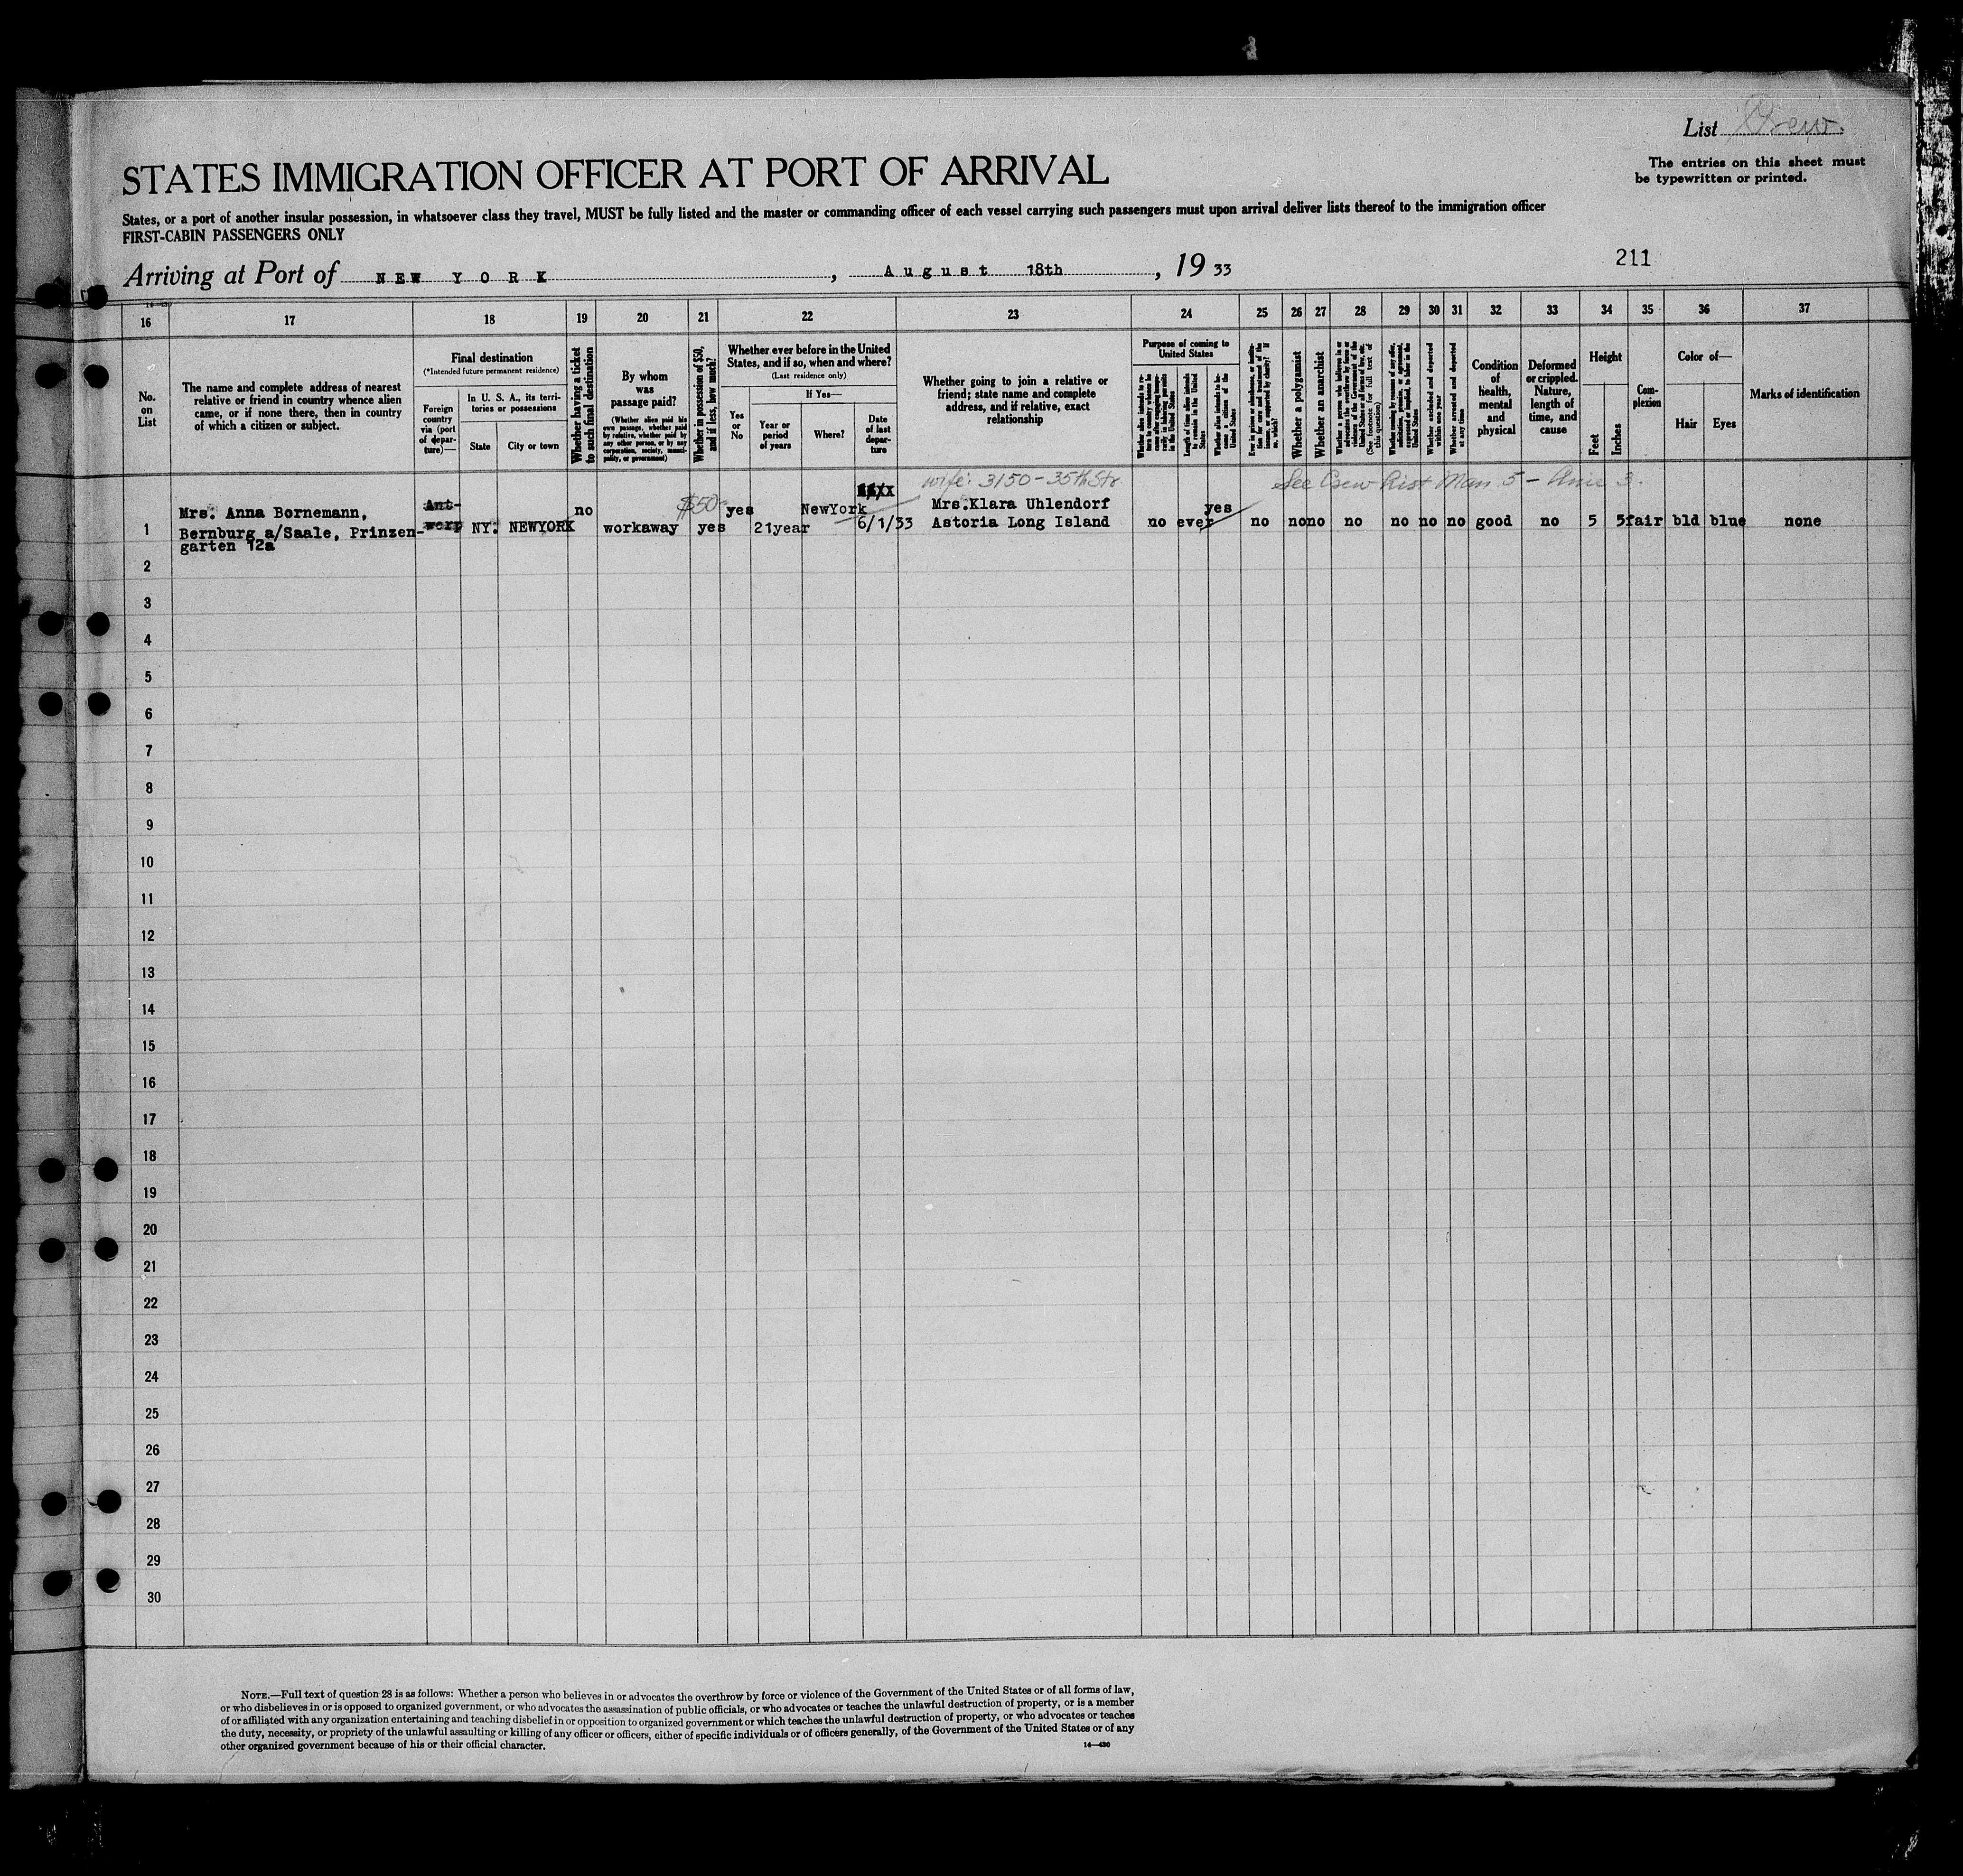 List Crew.
The entries on this sheet must
be typewritten or printed.
STATES IMMIGRATION OFFICER AT PORT OF ARRIVAL
States, or a port of another insular possession, in whatsoever class they travel, MUST be fully listed and the master or commanding officer of each vessel carrying such passengers must upon arrival deliver lists thereof to the immigration officer
FIRST-CABIN PASSENGERS ONLY
211
Arriving at Port of NEW YORK, August 18th, 19 33
16 17 18 19 20 21 22 23 24 25 26 27 28 29 30 31 32 33 34 35 36 37
No.
on
List
The name and complete address of nearest
relative or friend in country whence alien
came, or if none there, then in country
of which a citizen or subject.
Final destination
(*Intended future permanent residence)
Foreign
country
via (port
of depar-
ture)—
In U. S. A., its terri-
tories or possessions
State
City or town
Whether having a ticket
to such final destination
By whom
was
passage paid?
(Whether alien paid his
own passage, whether paid
by relative, whether paid by
any other person, or by any
corporation, society, munici-
pality, or government)
Whether in possession of $50,
and if less, how much?
Whether ever before in the United
States, and if so, when and where?
(Last residence only)
Yes
or
No
If Yes—
Year or
period
of years
Where?
Date
of last
depar-
ture
Whether going to join a relative or
friend; state name and complete
address, and if relative, exact
relationship
Purpose of coming to
United States
Length of time alien intends
to remain in the United
States
Whether alien intends to be-
come a citizen of the
United States
Whether a polygamist
Whether an anarchist
(See footnote for full text of
this question)
Whether arrested and deported
at any time
Condition
of
health,
mental
and
physical
Deformed
or crippled.
Nature,
length of
time, and
cause
Height
Feet
Inches
Com-
plexion
Color of—
Hair
Eyes
Marks of identification
wife: 3150-35th Str
See Crew List Man 5 - Line 3.
Mrs. Anna Bornemann,
Bernburg a/Saale, Prinzen-
garten 12a
1 Ant-
werp NY. NEWYORK no workaway $50- yes yes 21year NewYork 6/1/33
Mrs.Klara Uhlendorf
Astoria Long Island
no ever yes no no no no no no no good no 5 5 fair bld blue none
2
3
4
5
6
7
8
9
10
11
12
13
14
15
16
17
18
19
20
21
22
23
24
25
26
27
28
29
30
NOTE.—Full text of question 28 is as follows: Whether a person who believes in or advocates the overthrow by force or violence of the Government of the United States or of all forms of law,
or who disbelieves in or is opposed to organized government, or who advocates the assassination of public officials, or who advocates or teaches the unlawful destruction of property, or is a member
of or affiliated with any organization entertaining and teaching disbelief in or opposition to organized government or which teaches the unlawful destruction of property, or who advocates or teaches
the duty, necessity, or propriety of the unlawful assaulting or killing of any officer or officers, either of specific individuals or of officers generally, of the Government of the United States or of any
other organized government because of his or their official character.
14—430